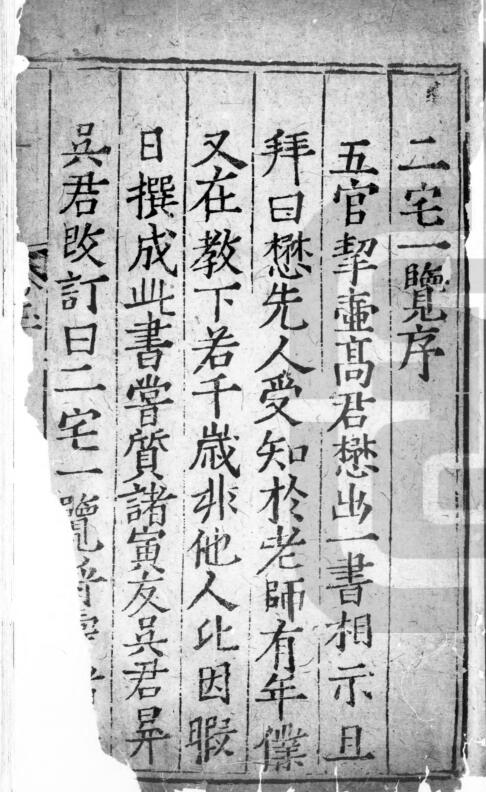 二宅一覽序
五官挈壷高君懋出一書相示且
拜曰懋先人受知於老師有年僕
又在教下若千歲非他人比因暇
日撰成此書嘗質諸寅友吳君昇
吳君改訂曰二宅一覽